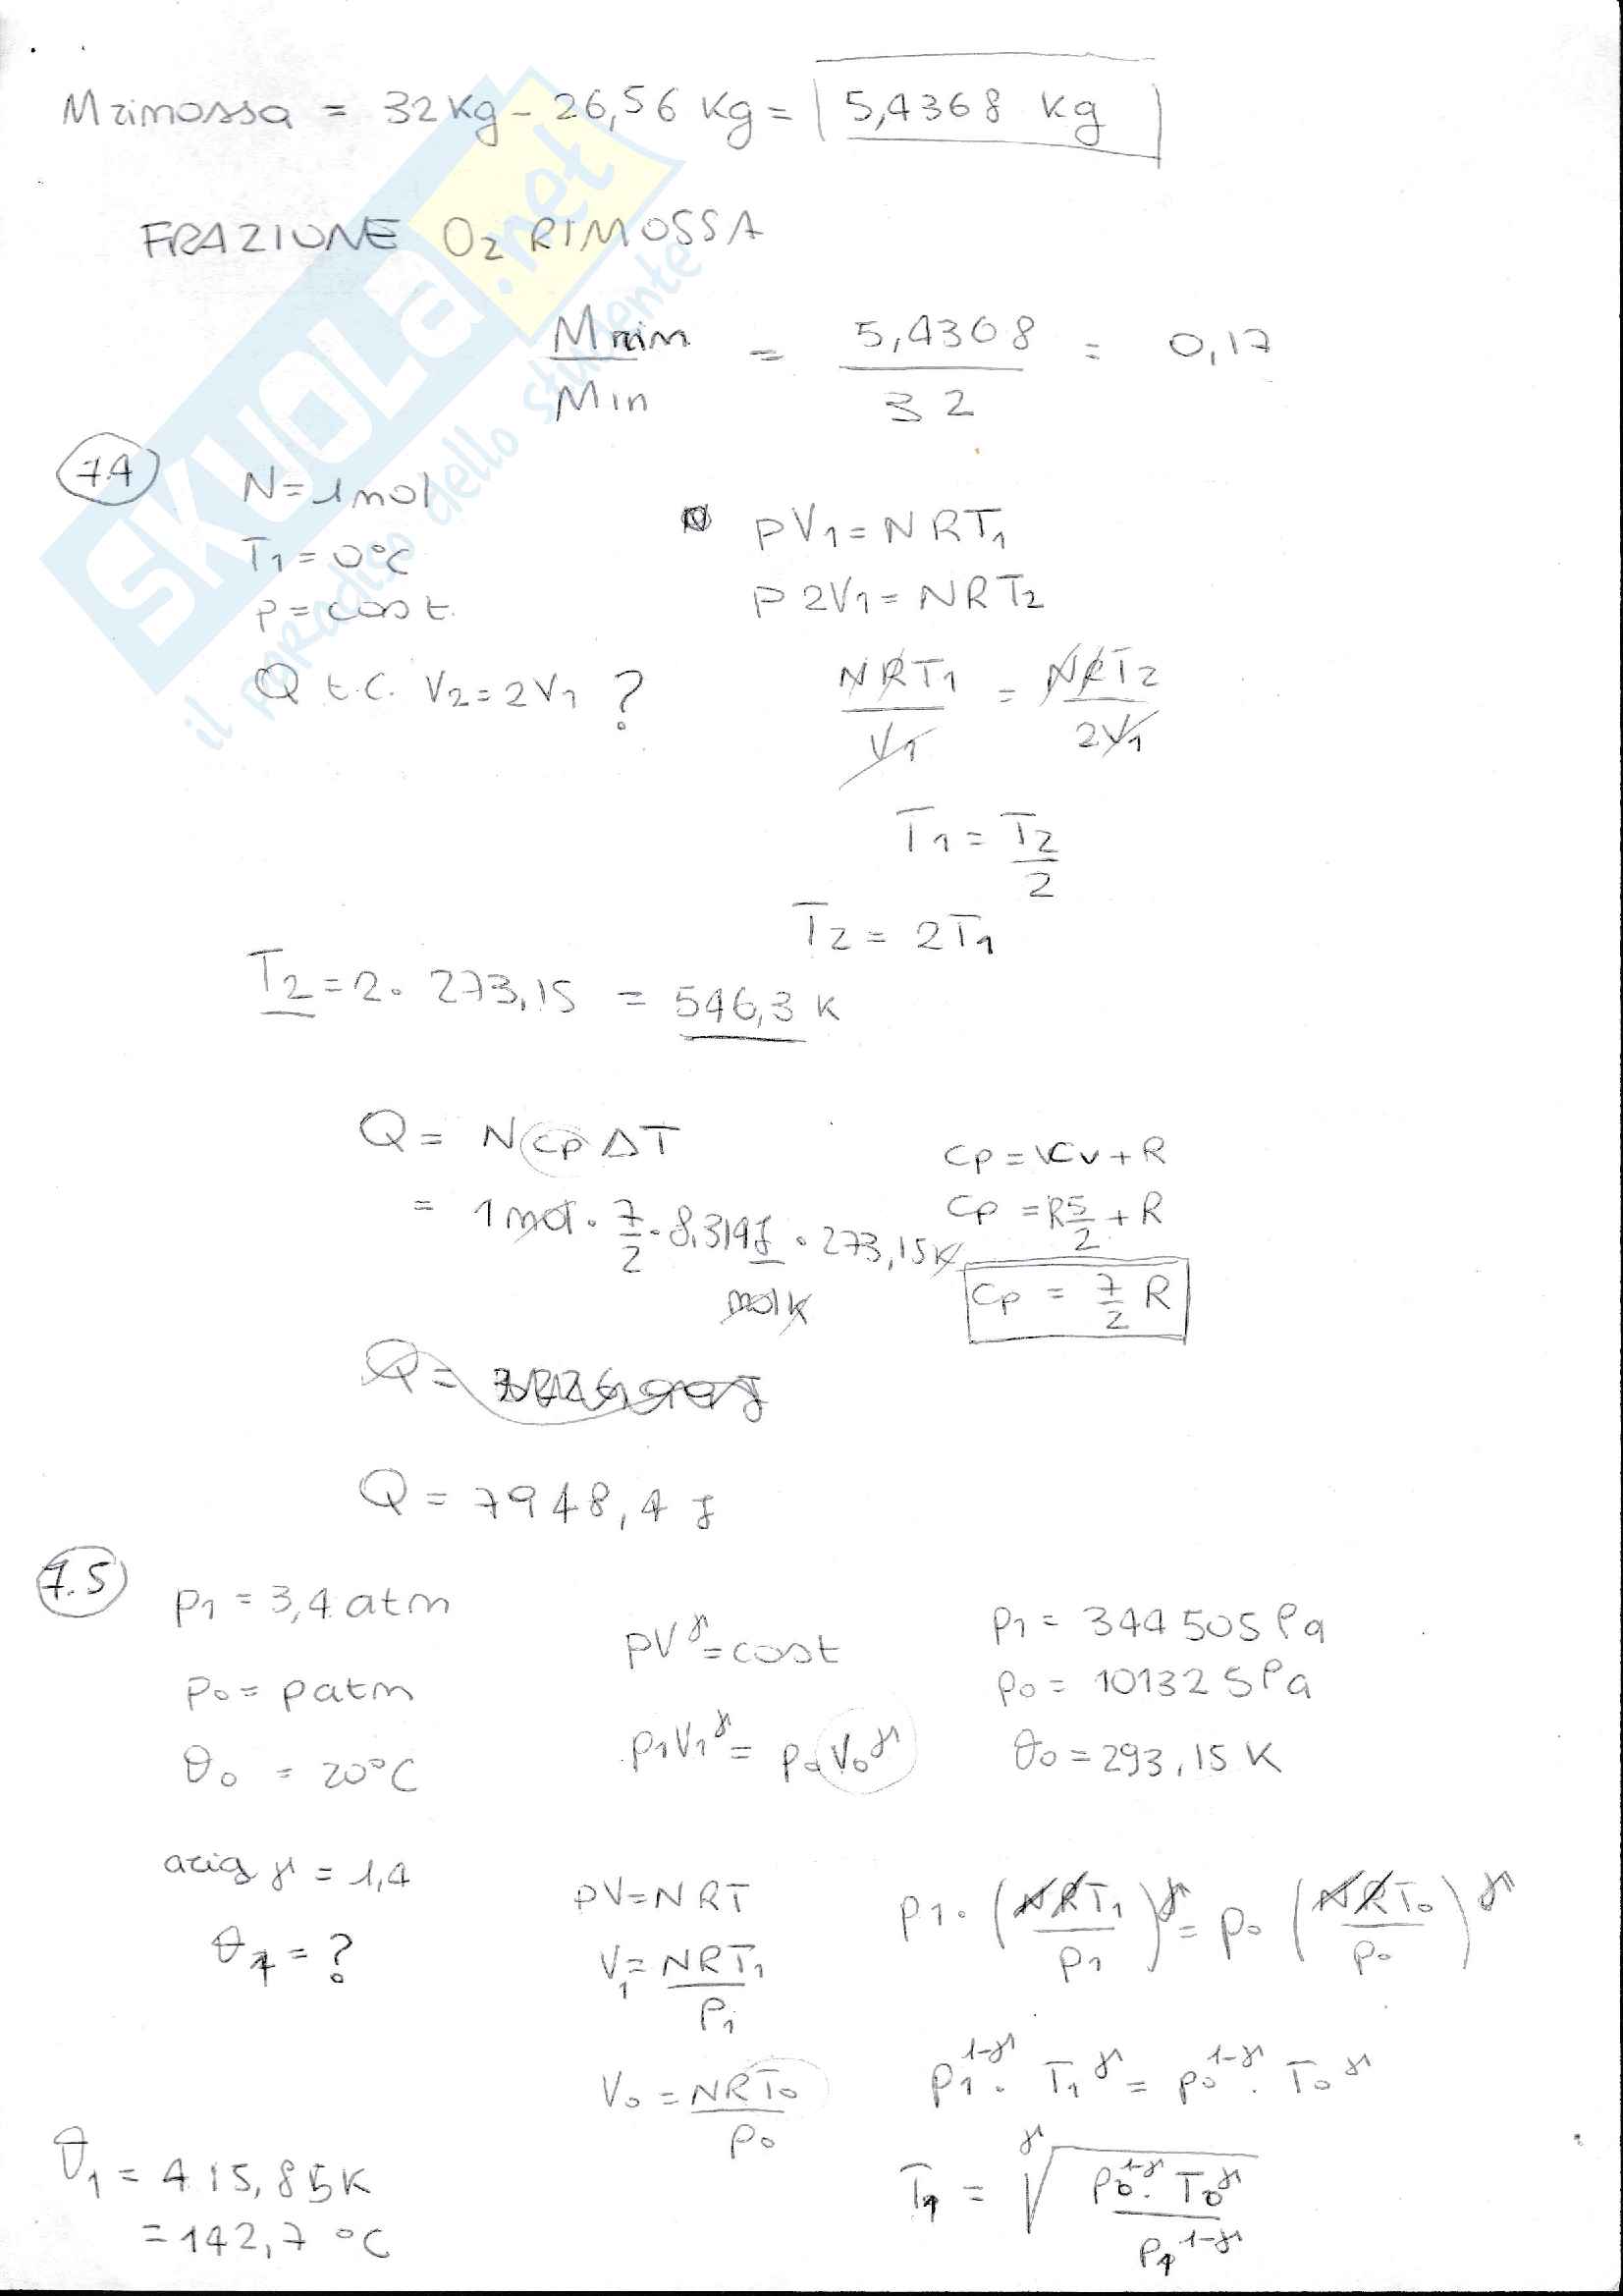 Mrimossa = 32Kg - 26,56 Kg = 5,4368 Kg
FRAZIONE O2 RIMOSSA
Mrim / Min = 5,4368 / 32 = 0,17
SKUOLA.net
il paradiso dello studente
7.4
N=1mol
T1=0°C
p=cost.
Q t.c. V2=2V1 ?
pV1=NRT1
p2V1=NRT2
NRT1 / V1 = NRT2 / 2V1
T1 = T2 / 2
T2 = 2T1
T2=2. 273,15 = 546,3 K
Q = N cp ΔT
= 1mol . 7/2 . 8,314 J / mol K . 273,15K
cp = cv+R
cp = R 5/2 + R
cp = 7/2 R
Q =
Q = 7948,4 J
7.5
p1 = 3,4 atm
p0 = patm
θ0 = 20°C
aria γ = 1,4
θ1 = ?
pV^γ=cost
p1V1^γ = p0V0^γ
p1 = 344505Pa
p0 = 101325Pa
θ0 = 293,15 K
pV=NRT
V1=NRT1 / p1
V0 = NRT0 / p0
p1. (NRT1 / p1)^γ = p0 (NRT0 / p0)^γ
p1^1-γ . T1^γ = p0^1-γ . T0^γ
T1 = γ√ p0^1-γ . T0^γ / p1^1-γ
θ1 = 415,85K
= 142,7 °C